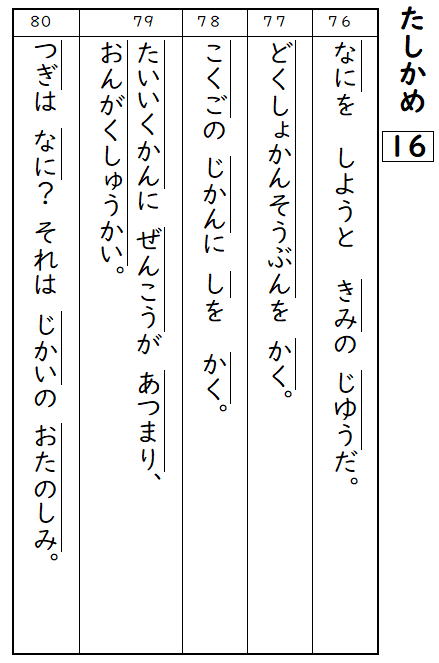 たしかめ
16
76
なにを　しようと　きみの　じゆうだ。
77
どくしょかんそうぶんを　かく。
78
こくごの　じかんに　しを　かく。
79
たいいくかんに　ぜんこうが　あつまり、
おんがくしゅうかい。
80
つぎは　なに？　それは　じかいの　おたのしみ。